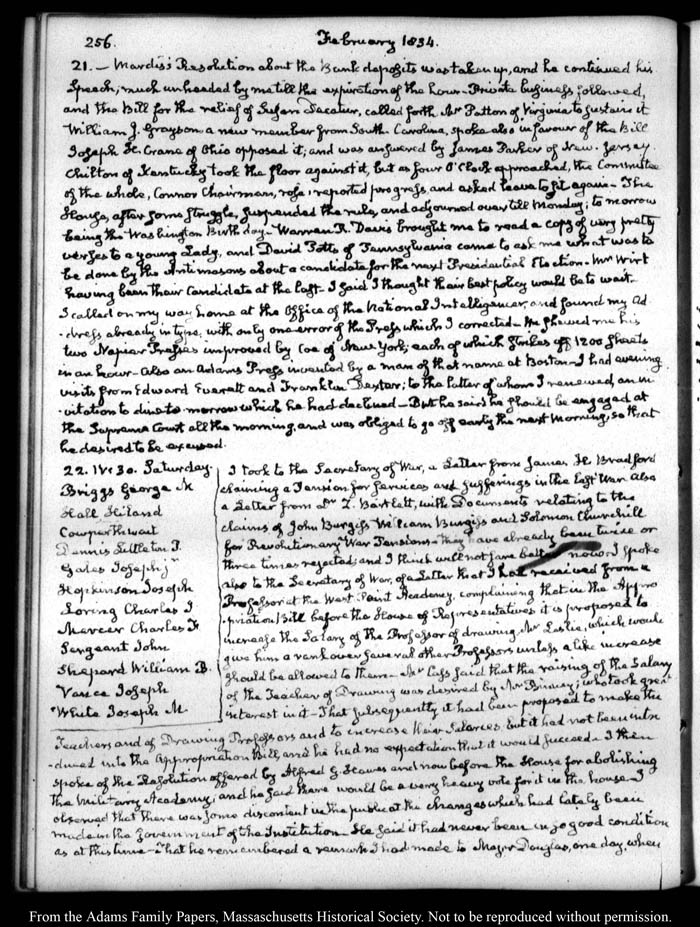 256. February 1834.
21. — Mardis's Resolution about the Bank deposits was taken up, and he continued his
Speech, much unheeded by me till the expiration of the hour. Private business followed,
and the Bill for the relief of Susan Decatur, called forth Mr Patton of Virginia to sustain it
William J. Grayson a new member from South Carolina, spoke also in favour of the Bill
Joseph H. Crane of Ohio opposed it; and was answered by James Parker of New Jersey.
Chilton of Kentucky took the floor against it, but as four O'Clock approached, the Committee
of the whole, Connor Chairman, rose, reported progress, and asked leave to sit again — The
House, after some struggle, suspended the rule, and adjourned over till Monday; to morrow
being the Washington Birth day — Warren R. Davis brought me to read a copy of very pretty
verses to a young Lady, and David Potts of Pennsylvania came to ask me what was to
be done by the Antimasons about a candidate for the next Presidential Election — Mr Wirt
having been their Candidate at the last — I said I thought their best policy would be to wait —
I called on my way home at the Office of the National Intelligencer, and found my Ad
-dress already in type, with only one error of the Press which I corrected — He shewed me his
two Napier Presses improved by Coe of New York; each of which strikes off 1200 sheets
in an hour — Also an Adams Press invented by a man of that name at Boston — I had evening
visits from Edward Everett and Franklin Dexter; to the latter of whom I renewed an in
-vitation to dine to-morrow which he had declined — But he said he should be engaged at
the Supreme Court all the morning, and was obliged to go off early the next Morning, so that
he desired to be excused.
22. IV:30. Saturday
Briggs George N
Hall Hiland
Cowperthwait
Dennis Littleton P.
Gales Joseph jr
Hopkinson Joseph
Loring Charles J
Mercer Charles F
Sergeant John
Shepard William B.
Vance Joseph
White Joseph M
I took to the Secretary of War, a Letter from James H Bradford
claiming a Pension for services and sufferings in the last War. Also
a Letter from Mr Z. Bartlett, with Documents relating to the
claims of John Burgiss William Burgiss and Solomon Churchill
for Revolutionary War Pensions — They have already been twice or
three times rejected; and I think will not fare better now. I spoke
also to the Secretary of War, of a Letter that I had received from a
Professor at the West Point Academy, complaining that in the Appro
-priation Bill before the House of Representatives it is proposed to
increase the Salary of the Professor of drawing, Mr Leslie, which would
give him a rank over several other Professors unless a like increase
should be allowed to them — Mr Cass said that the raising of the Salary
of the Teacher of Drawing was desired by Mr Binney; who took great
interest in it — That subsequently it had been proposed to make the
Teachers and of Drawing Professors and to increase their Salaries, but it had not been intro
-duced into the Appropriation Bill, and he had no expectation that it would succeed — I then
spoke of the Resolution offered by Albert G Hawes and now before the House for abolishing
the Military Academy; and he said there would be a very heavy vote for it in the house — I
observed that there was some discontent in the public at the changes which had lately been
made in the Government of the Institution — He said it had never been in so good condition
as at this time — That he remembered a remark I had made to Major Douglas, one day, when
From the Adams Family Papers, Massachusetts Historical Society. Not to be reproduced without permission.